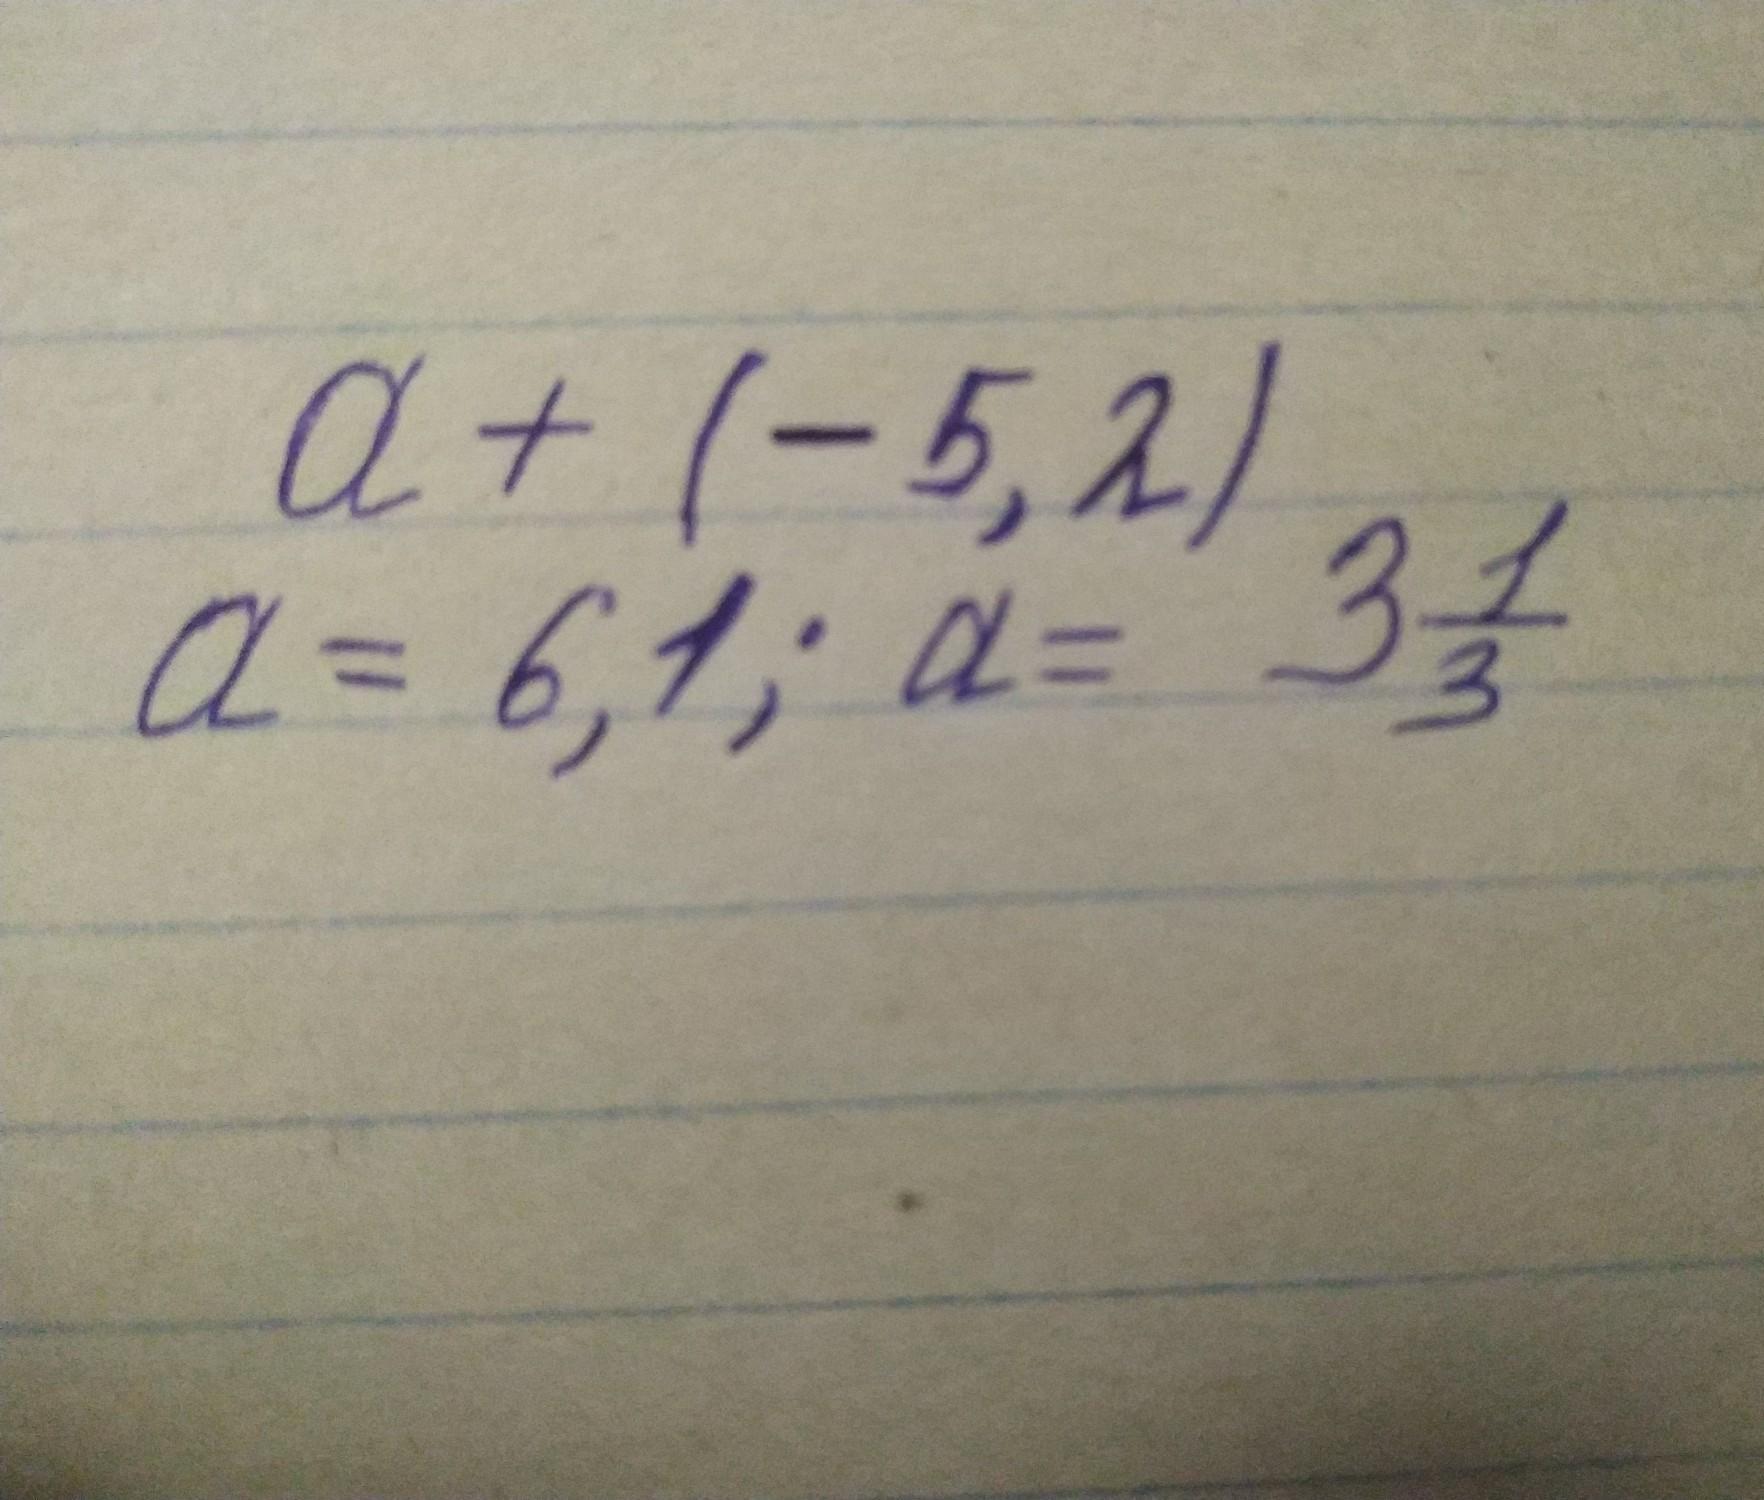 a + (-5,2)
a = 6,1; a = 3 1/3